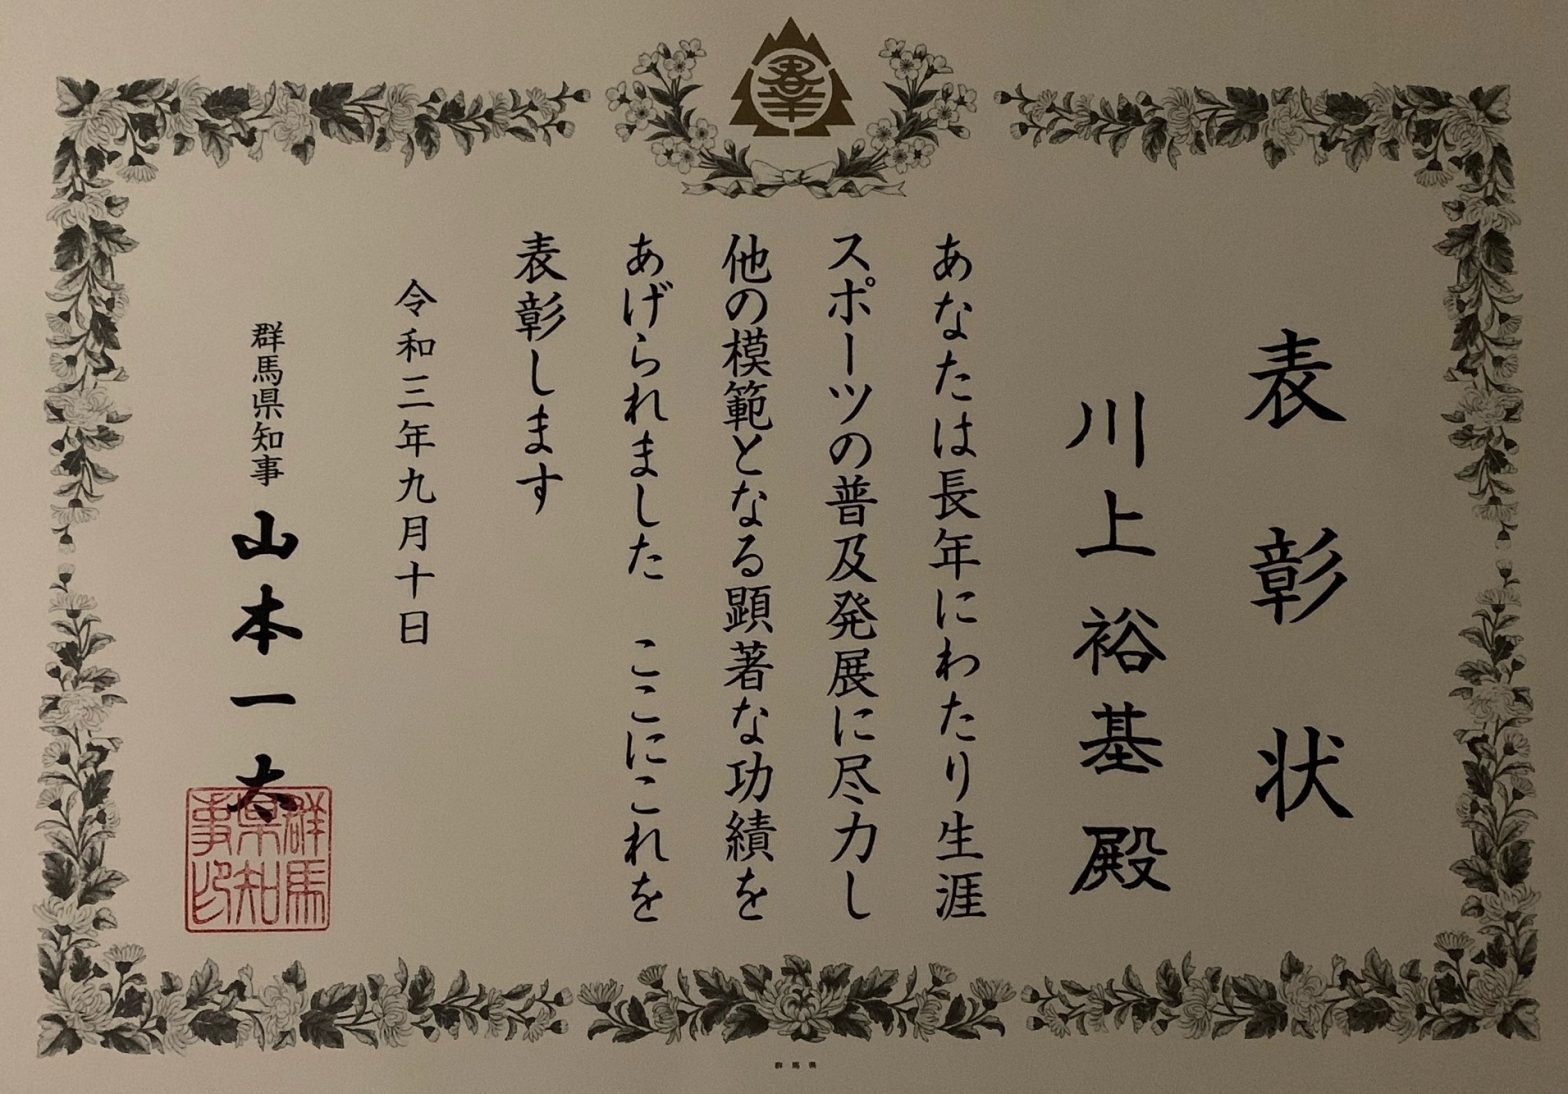 表彰状
川上裕基殿
あなたは長年にわたり生涯
スポーツの普及発展に尽力し
他の模範となる顕著な功績を
あげられました　ここにこれを
表彰します
令和三年九月十日
群馬県知事 山本一太
群馬県知事印
群馬県